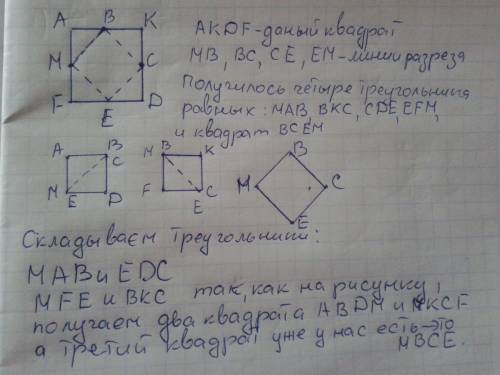 A B K
M C
F E D
AKDF-даный квадрат
MB, BC, CE, EM-линии разреза
Получилось четыре треугольника
равных: MAB, BKC, CDE, EFM,
и квадрат BCEM
A B C
M E D
M B K
F E C
B
M C
E
Складываем треугольники:
MAB и EDC
MFE и BKC так, как на рисунку,
получаем два квадрата ABDM и MKCF
а третий квадрат уже у нас есть-это
MBCE.